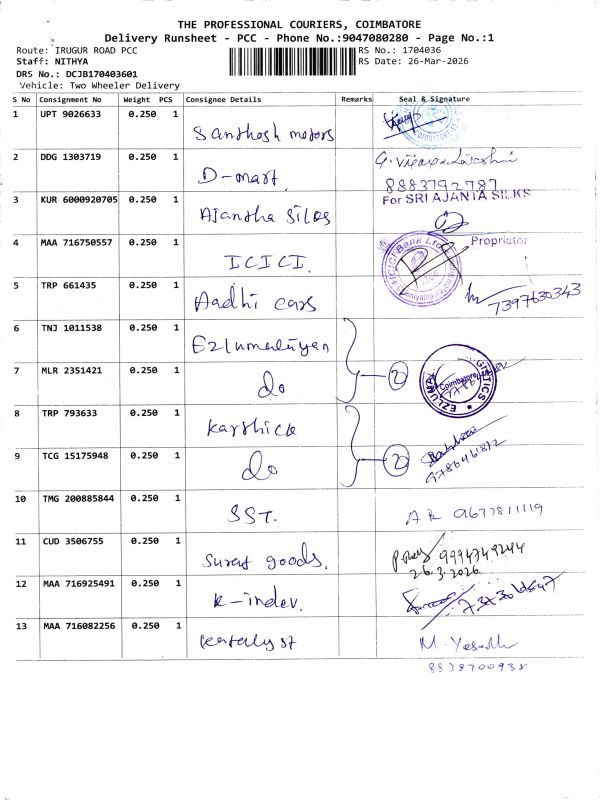 THE PROFESSIONAL COURIERS, COIMBATORE
Delivery Runsheet - PCC - Phone No.:9047080280 - Page No.:1
Route: IRUGUR ROAD PCC RS No.: 1704036
Staff: NITHYA RS Date: 26-Mar-2026
DRS No.: DCJB170403601
Vehicle: Two Wheeler Delivery
S No Consignment No Weight PCS Consignee Details Remarks Seal & Signature
1 UPT 9026633 0.250 1 Santhosh motors
2 DDG 1303719 0.250 1 D-mart G. Vijayalakshmi
8883792787
3 KUR 6000920705 0.250 1 Ajantha Silos For SRI AJANTA SILKS
Proprietor
4 MAA 716750557 0.250 1 ICICI. ICICI Bank Ltd
5 TRP 661435 0.250 1 Aadhi cars 7397630343
6 TNJ 1011538 0.250 1 Ezlumalaiyan
7 MLR 2351421 0.250 1 do 2 Coimbatore
8 TRP 793633 0.250 1 Karthick
9 TCG 15175948 0.250 1 do 2
10 TMG 200885844 0.250 1 SST. AR 9677811119
11 CUD 3506755 0.250 1 Surat goods. 9994749244
26.3.2026
12 MAA 716925491 0.250 1 K-indev.
13 MAA 716082256 0.250 1 Katalyst M. Yasodh
8838700938